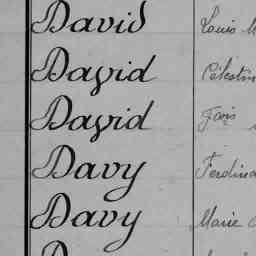 David Louis
David Célestin
David Fçois
Davy Ferdina
Davy Marie